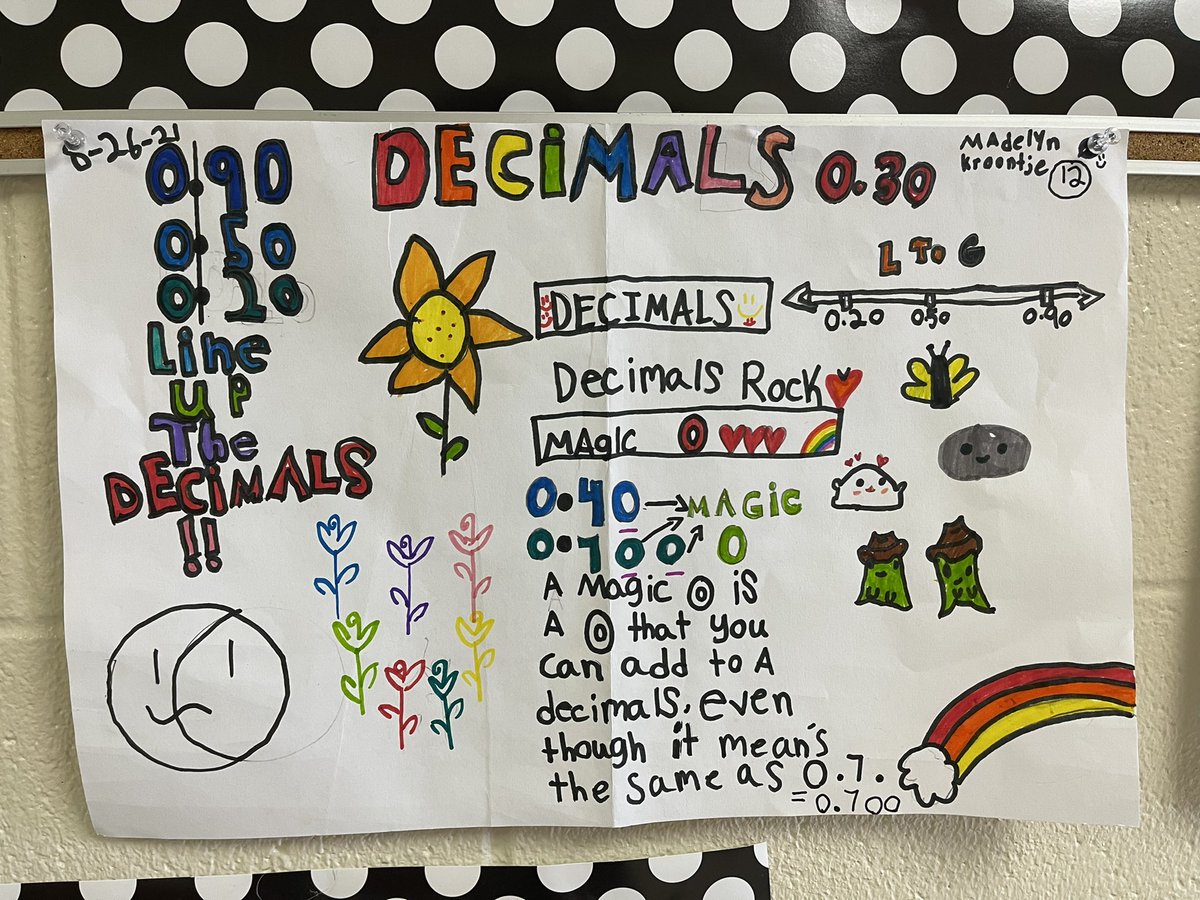 8-26-21
DECIMALS 0.30
MAdelyn
Kroontje
12
0.90
0.50
0.20
Line
up
The
DECiMALS
!!
L To G
0.20 0.50 0.90
DECIMALS
Decimals Rock
MAgic 0
0.40 → MAGiC
0.700 0
A Magic 0 is
A 0 that you
can add to A
decimals, even
though it mean's
the same as 0.7.
= 0.700